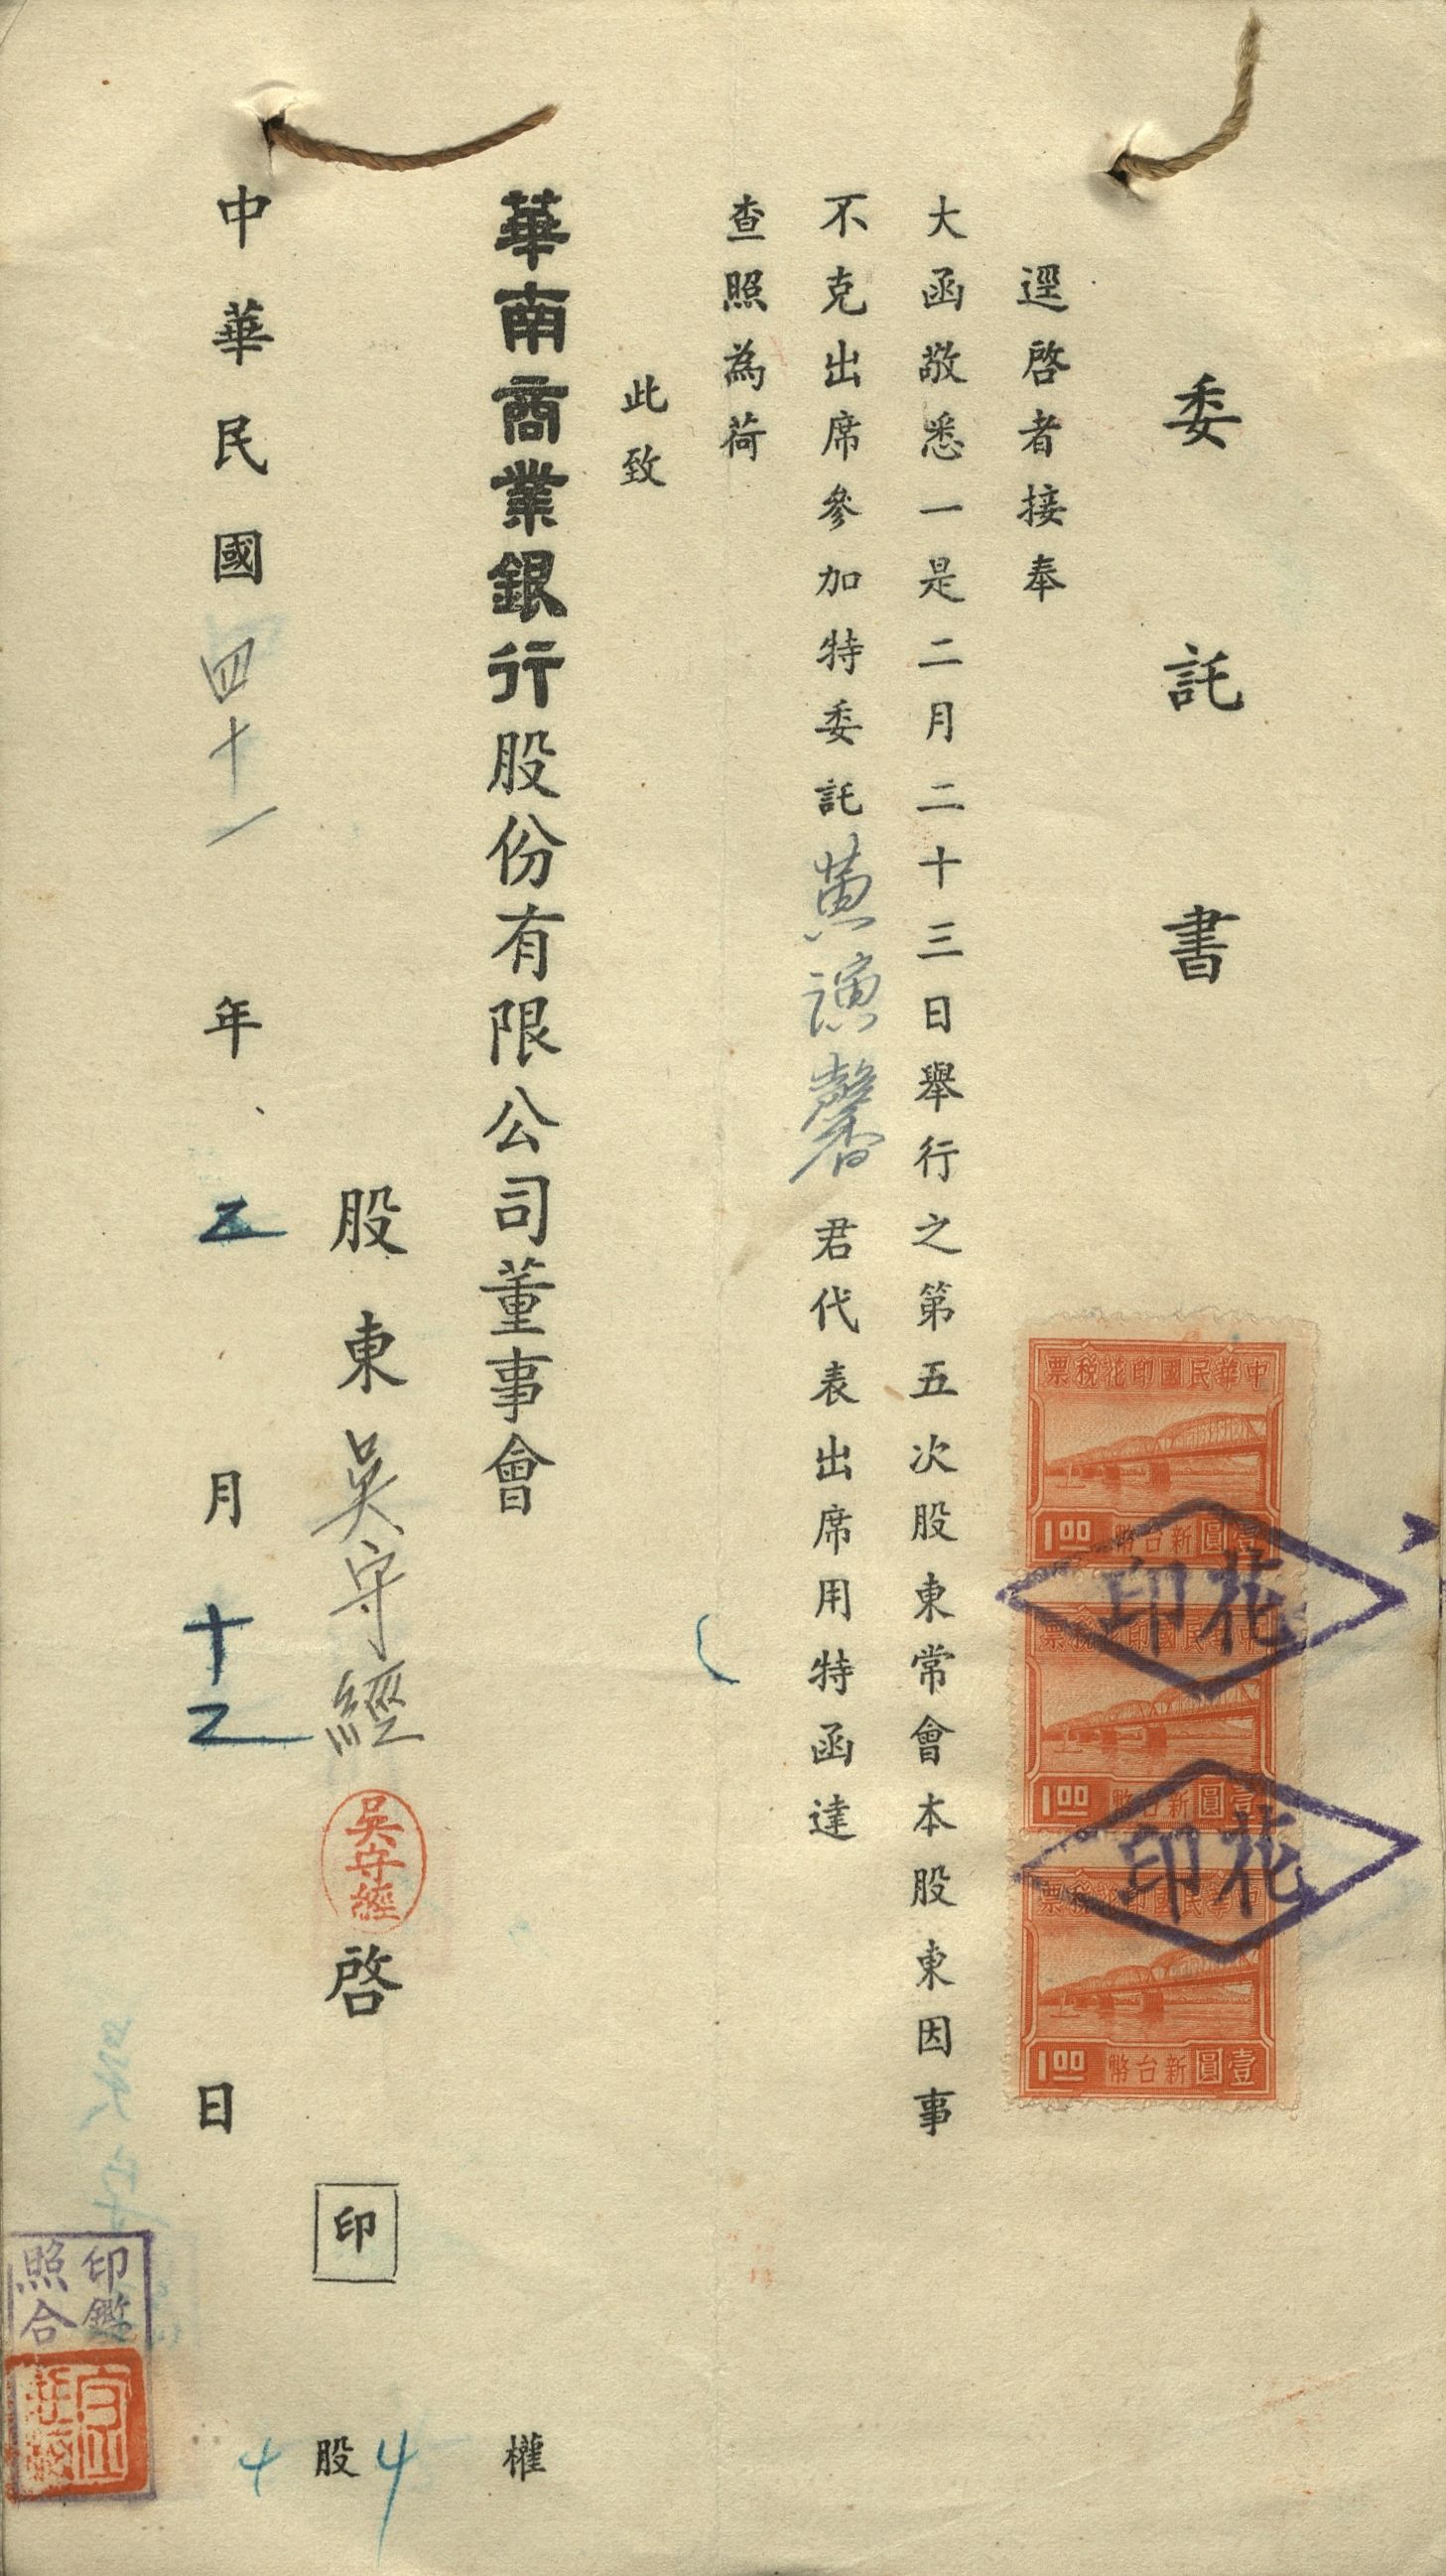 委託書
逕啓者接奉
大函敬悉一是二月二十三日舉行之第五次股東常會本股東因事
不克出席參加特委託黃馨君代表出席用特函達
查照為荷
此致
華南商業銀行股份有限公司董事會
權
股東吳守經啓
吳守經
印
4股
4
中華民國四十一年二月十二日
中華民國印花稅票
壹圓新台幣
1.00
印花
中華民國印花稅票
壹圓新台幣
1.00
印花
中華民國印花稅票
壹圓新台幣
1.00
印鑑
照合